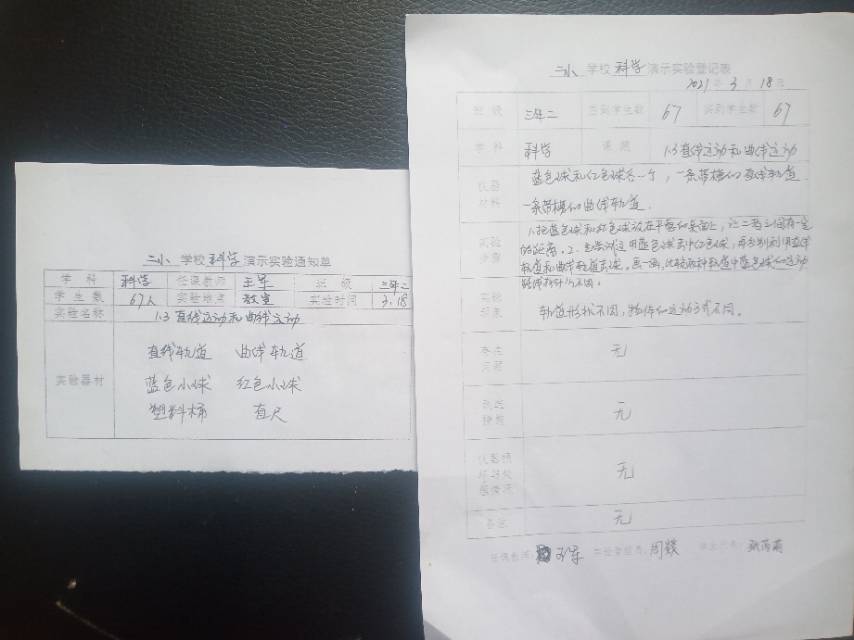 二小 学校 科学 演示实验通知单
学科 科学 任课教师 王军 班级 三年二
学生数 67人 实验地点 教室 实验时间 3.18
实验名称 1.3直线运动和曲线运动
实验器材
直线轨道 曲线轨道
蓝色小球 红色小球
塑料桶 直尺
二小 学校 科学 演示实验登记表
2021年3月18日
班级 三年二 应到学生数 67 实到学生数 67
学科 科学 课题 1.3直线运动和曲线运动
仪器材料
蓝色球和红色球各一个,一条带槽的直线轨道
一条带槽的曲线轨道.
实验步骤
1.把蓝色球和红色球放在平整的桌面上,让二者之间有一定
的距离.2.
轨道和曲线轨道
实验结果
轨道形状不同,物体的运动方式不同。
存在问题
无
改进
无
仪器损
无
备注
无
任课教师 王军 实验管理员 周 学生代表